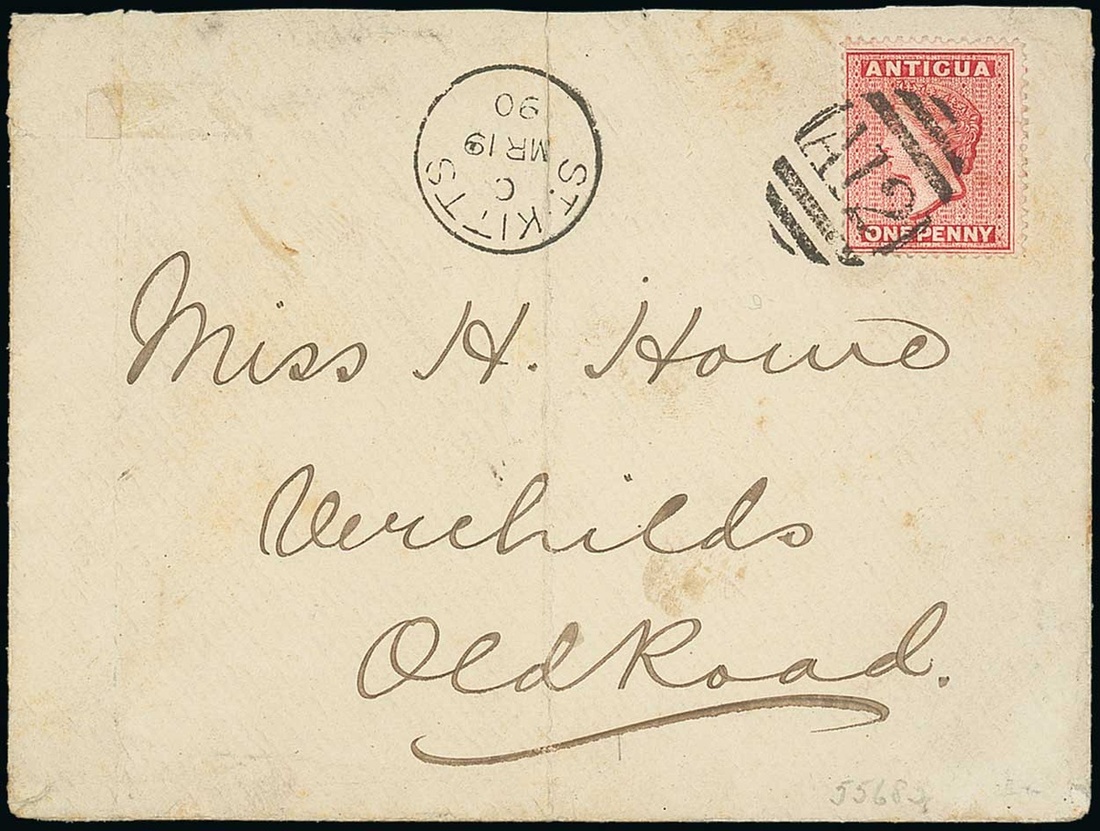 ANTIGUA
A12
ONE PENNY
ST. KITTS
C
MR 19
90
Miss H. Howe
Verchilds
Old Road.